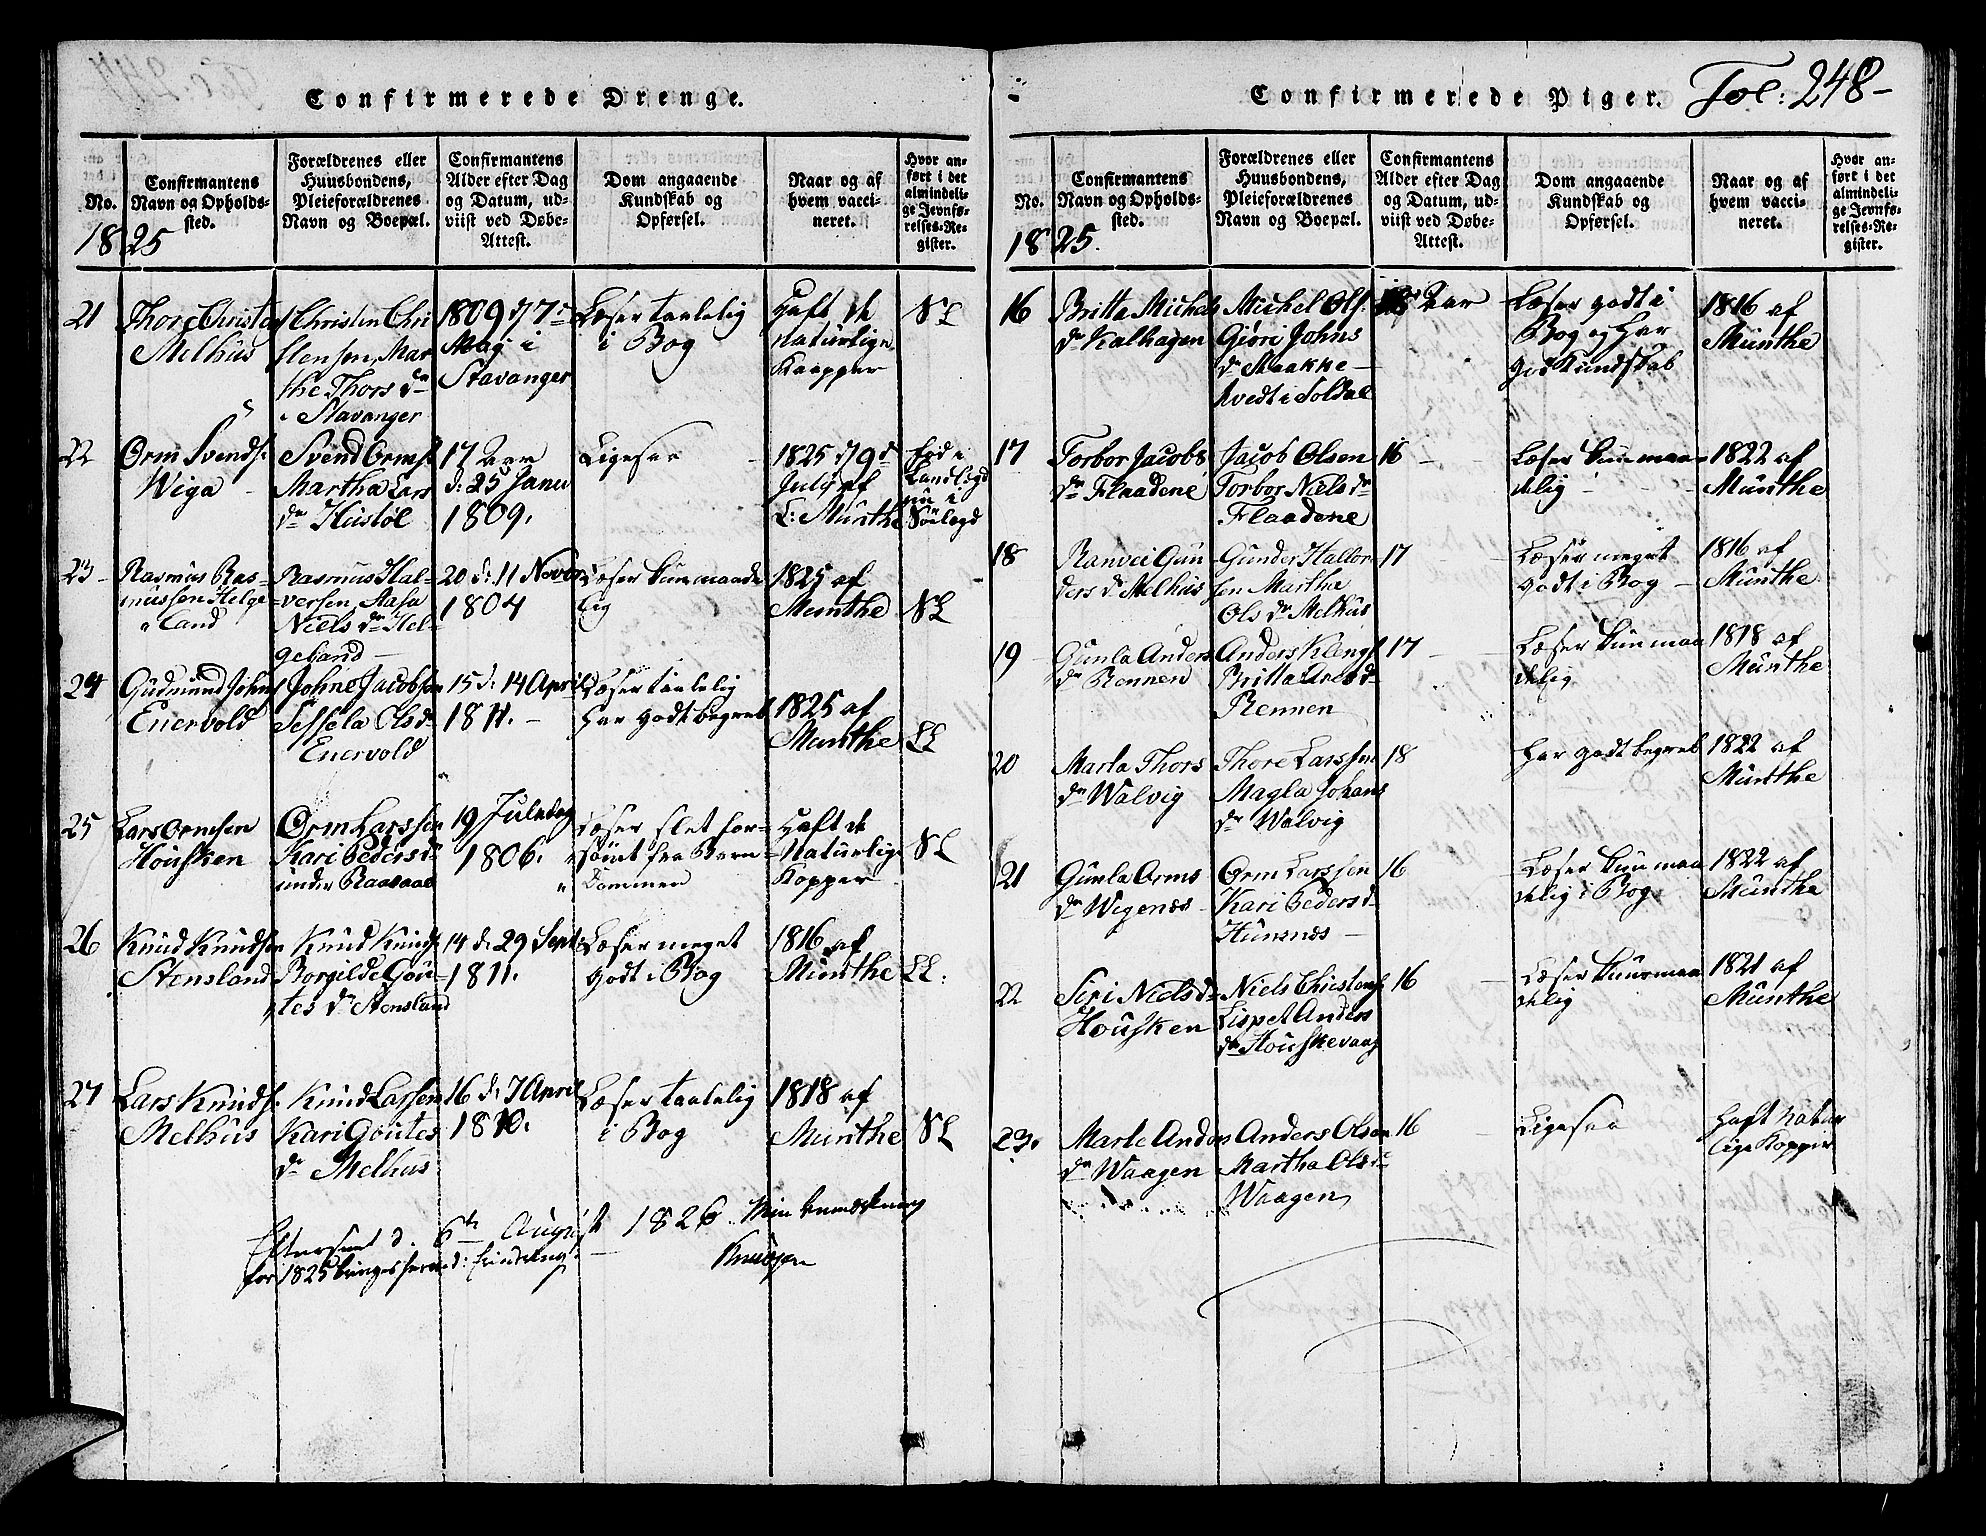 Confirmerede Drenge.
No.
Confirmantens
Navn og Opholds-
sted.
Forældrenes eller
Huusbondens,
Pleieforældrenes
Navn og Boepæl.
Confirmantens
Alder efter Dag
og Datum, ud-
viist ved Døbe-
Attest.
Dom angaaende
Kundskab og
Opførsel.
Naar og af
hvem vacci-
neret.
Hvor an-
ført i det
almindeli-
ge Jevnfø-
relses-Re-
gister.
1825
21
Thore Christs
Melhús
Christen Chri
stensen, Mar
the Thors dr
i Stavanger
1809 d 7de
Maj i
Stavanger
Læser taalelig
i Bog
Haft de
naturlige
Kaapper
SL
22
Orm Svends.
Wiga
Svend Orms
Martha Lars
dr Hústöl
17 aar
d: 25 Janu
1809.
Ligesaa
1825 d 9d
July af
L: Múnthe
Før i
Landlegd
nu i
Söelegd
23
Rasmus Ras=
mussen Helge
land
Rasmus Hal-
versen, Aasa
Niels dr Hel-
geland
20 d: 11 Novbr
1804
Læser kun maade
lig
1825 af
Munthe
SL
24
Gúdmund Johns
Enervold
Johne Jacobsen
Sessela Ols d
Enervold
15 d. 14 April
1811.
Læser taalelig
har godt begreb
1825 af
Munthe
LL
25
Lars Ormsen
Höusken
Orm Larssen
Kari Peders d
under Raasaae
19 Juledag
1806.
Læser slet for-
sömt fra Barn
dommen
Haft de
Naturlige
Kopper
SL
26
Knúd Knúdsen
Stensland
Knúd Knúds
Borgilde Göu-
tes dr Stensland
14 d. 29 Sept:
1811.
Læser meget
godt i Bog
1816 af
Múnthe
LL.
27
Lars Knúds.
Melhús
Knúd Larssen
Kari Göutes
dr Melhus
16 d. 7 April
1810.
Læser taalelig
i Bog
1818 af
Múnthe
SL
Efterseet d. 6te Augúst 1826. Min bemærkning
for 1825
Knudsen
Confirmerede Piger.
Fol: 248-
No.
Confirmantens
Navn og Opholds-
sted.
Forældrenes eller
Huusbondens,
Pleieforældrenes
Navn og Boepæl.
Confirmantens
Alder efter Dag
og Datum, ud-
viist ved Døbe-
Attest.
Dom angaaende
Kundskab og
Opførsel.
Naar og af
hvem vacci-
neret.
Hvor an-
ført i det
almindeli-
ge Jevnfø-
relses-Re-
gister.
1825.
16
Britta Michels
dr Kalhagen
Michel Ols.
Giöri Johns
dr Maakke-
tvedt i Soldal
Aar
Læser godt i
Bog og har
god Kundskab
1816 af
Múnthe
17
Torbor Jacobs
dr Flaadene
Jacob Olsen
Torbor Niels dr
Flaadene
16
Læser kun maa
delig
1822 af
Múnthe
18
Ranvei Gun
ders dr Melhús
Gunder Haldor
sen Martha
Ols dr Melhús
17
Læser meget
godt i Bog
1816 af
Múnthe
19
Gúnla Anders
dr Rennen
Anders Klengs
Britta Ands d
Rennen
17
Læser kun maa
delig
1818 af
Múnthe
20
Marla Thors
dr Walvig
Thore Larssen
Magla Johans
dr Walvig
18
har godt begreb
1822 af
Múnthe
21
Gúnla Orms
dr Wigenæs
Orm Larssen
Kari Peders d
Húnsnæs
16
Læser kun maa
delig i Bog
1822 af
Múnthe
22
Siri Niels d
Höusken
Niels Christens
Lispet Anders
dr Höuskevaag
16
Læser kun maa
delig
1821 af
Múnthe
23.
Marle Anders
dr Waagen
Anders Olsen
Martha Ols dr
Waagen
16
Ligesaa
haft Natur
lige Kopper